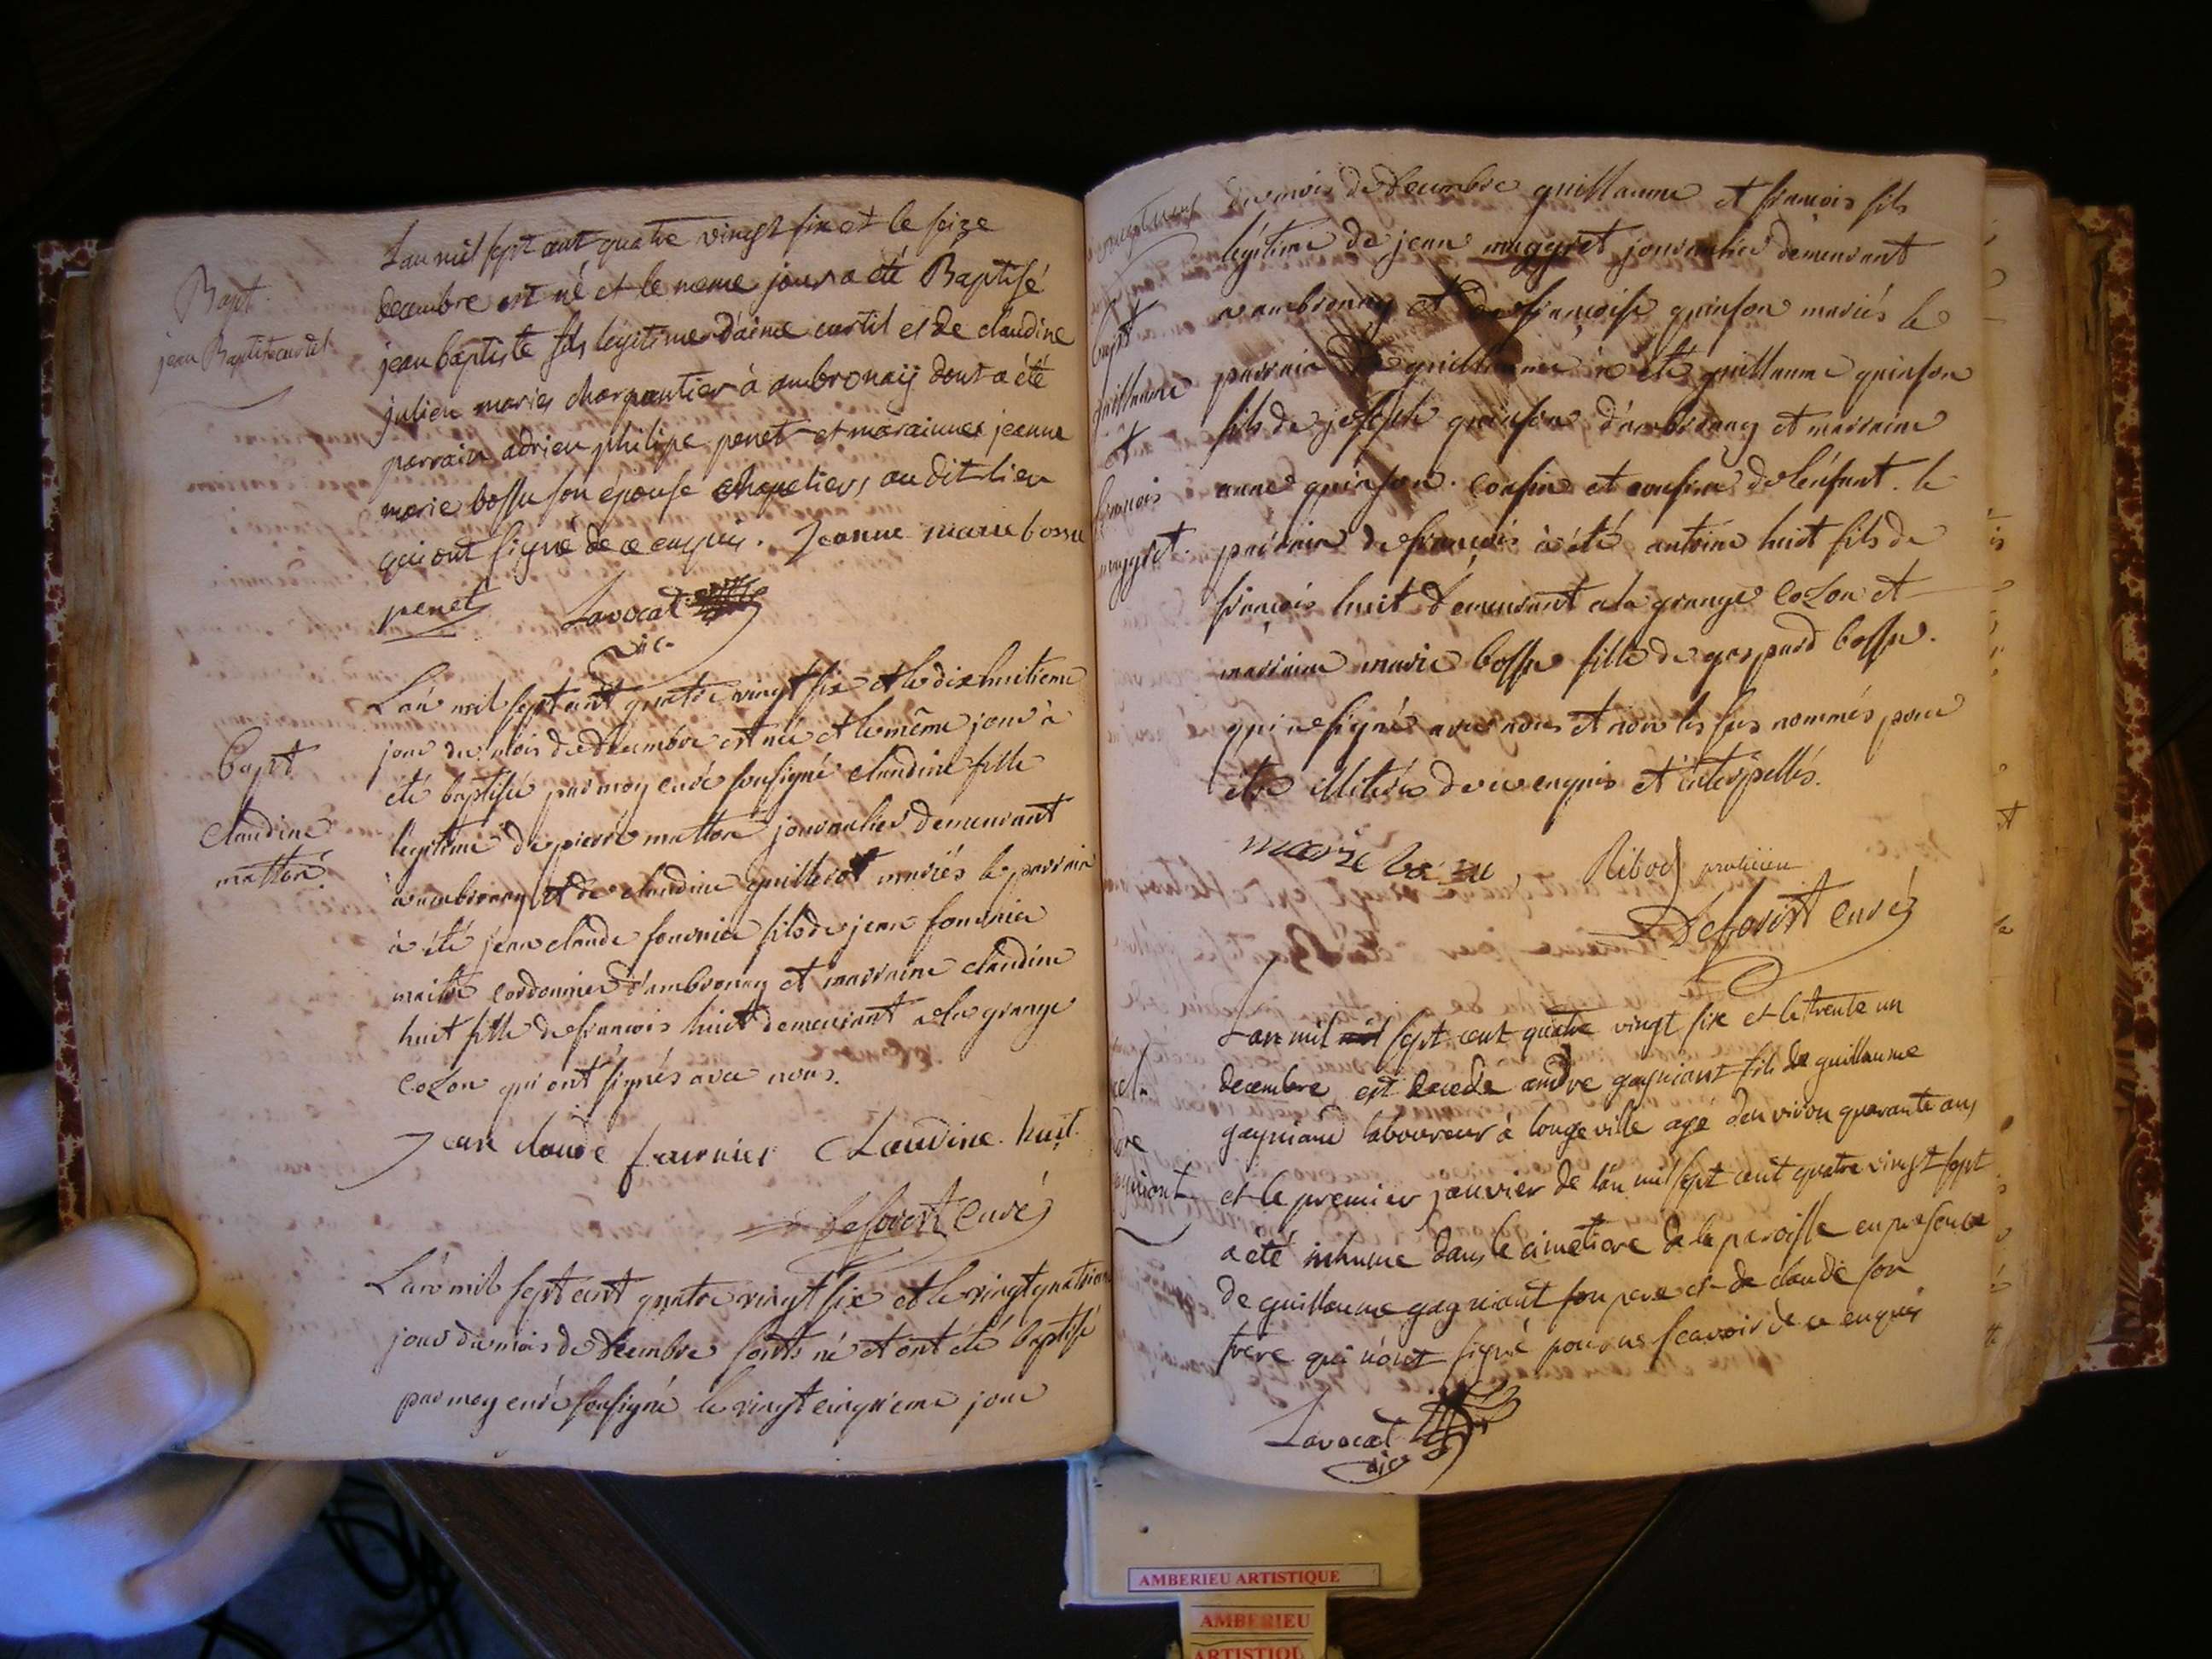 Bapt.
jean Baptiste curtil
L'an mil sept cent quatre vingt six et le seize
decembre est né et le meme jour a été Baptisé
jean baptiste fils legitime d'aimé curtil et de claudine
julien mariés charpentier à ambronaij dont a été
parrain adrien philipe penet et marainne jeanne
marie bossu son épouse chapeliers au dit lieu
qui ont signé de ce enquis. Jeanne marie bossu
penet Lavocat
vic.
bapt
claudine
mattoré
L'an mil sept cent quatre vingt six et le dix huitieme
jour du mois de decembre est née et le même jour à
été baptisée par moy curé soussigné claudine fille
légitime de pierre mattoré journalier demeurant
a ambronay et de claudine guillerot mariés le parrain
à été jean claude fournier fils de jean fournier
maitre cordonnier d'ambronay et marraine claudine
huit fille de francois huit demeurant a la grange
cozon qui ont signés avec nous.
jean claude fournier Claudine. huit.
Deforest curé
L'an mil sept cent quatre vingt six et le vingt quatrieme
jour du mois de decembre sonts né et ont été baptisé
par moy curé soussigné le vingt cinquieme jour
bapt
guillaume
et
françois
muggret.
du mois de decembre guillaume et françois fils
légitime de jean muggret journalier demeurant
a ambronay et de françoise quinson mariés le
parrain de guillaume à été guillaume quinson
fils de joseph quinson d'ambronay et marraine
anne quinson. cousin et cousine de l'énfant. le
parrain de françois à été antoine huit fils de
françois huit demeurant a la grange cozon et
marraine marie bossu fille de gaspard bossu.
qui a signée avec nous et non les sus nommés pour
etre illiterés de ce enquis et interpellés.
marie bossu Ribod praticien
Deforest curé
L'an mil sept cent quatre vingt six et le trente un
decembre est decede andre gagniant fils de guillaume
gagniand laboureur à longeville agé d'environ quarante ans
et le premier janvier de l'an mil sept cent quatre vingt sept
a été inhumé dans le cimetiere de la paroisse en presence
de guillaume gagniant son pere et de claude son
frere qui n'ont signé pour ne scavoir de ce enquis
Lavocat
vic.
AMBERIEU ARTISTIQUE
AMBERIEU
ARTISTIQUE